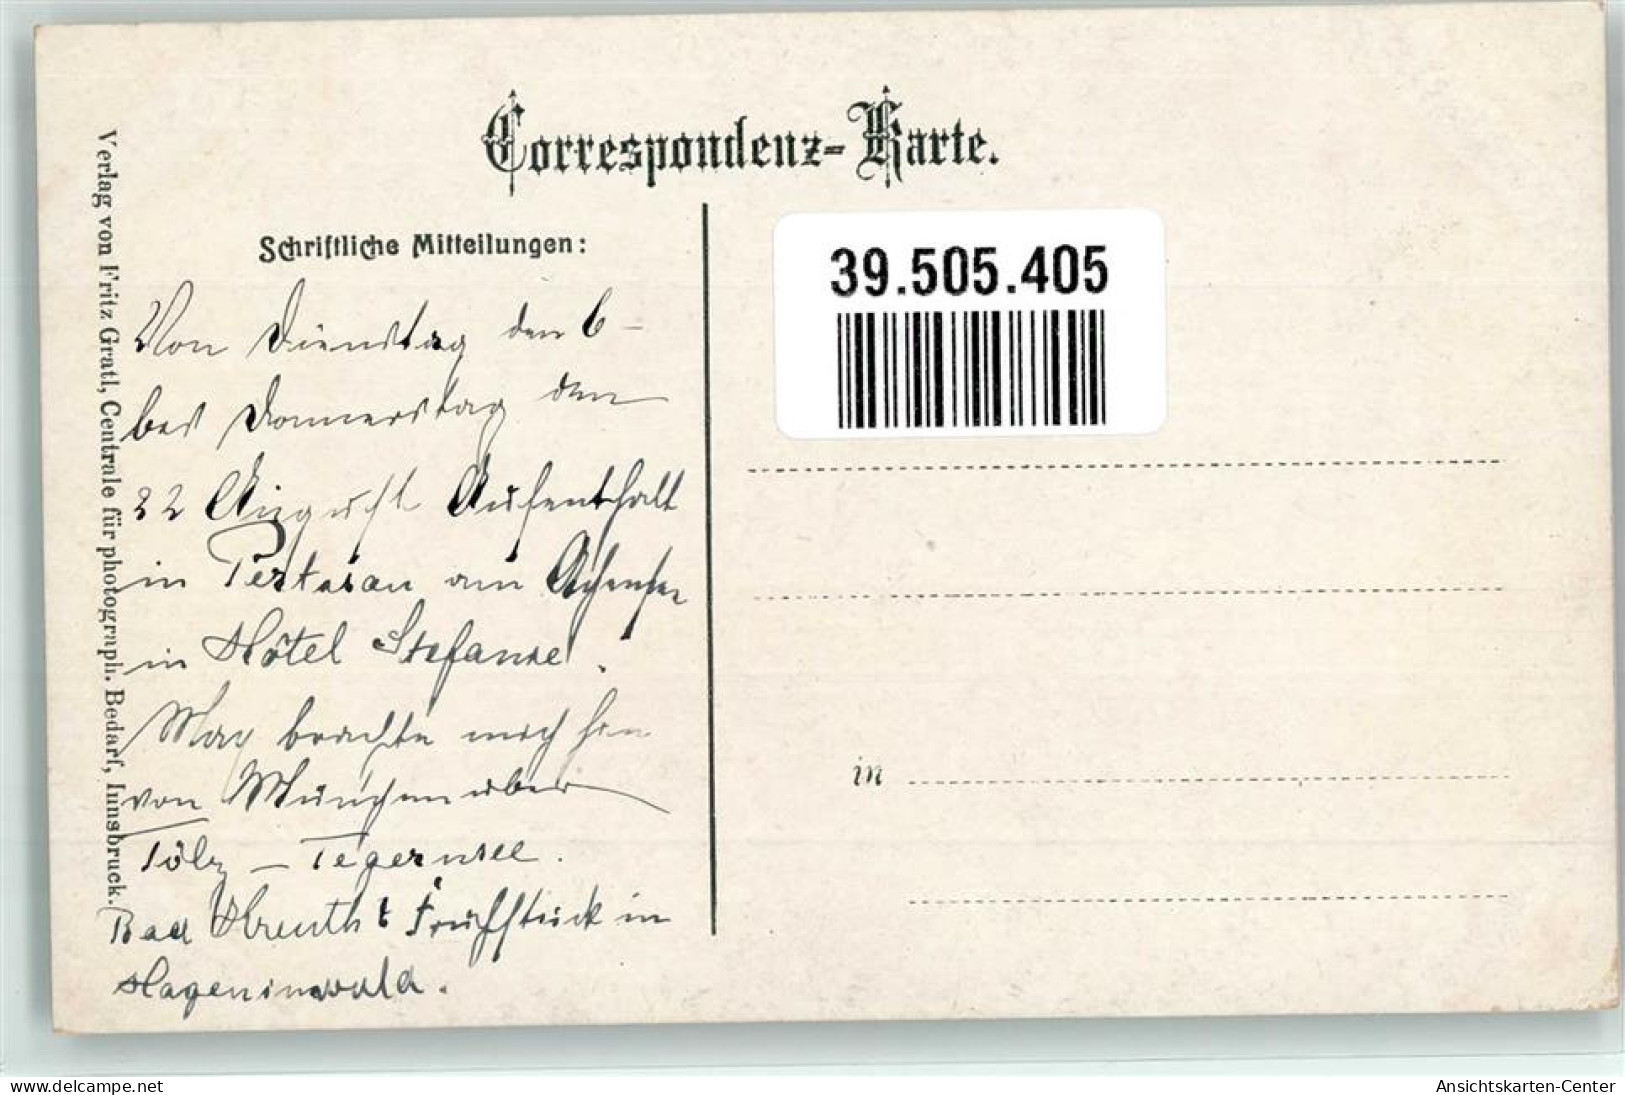 Correspondenz-Karte.
Schriftliche Mitteilungen:
39.505.405
Verlag von Fritz Gratl, Centrale für photograph. Bedarf, Innsbruck.
Von Dienstag den 6 –
bis Donnerstag den
22 August Aufenthalt
in Pertisau am Achensee
in Hôtel Stefanie.
May brachte mich hin
von München über
Tölz – Tegernsee.
Bad Kreuth & Frühstück in
Hagen im wald.
in
www.delcampe.net
Ansichtskarten-Center